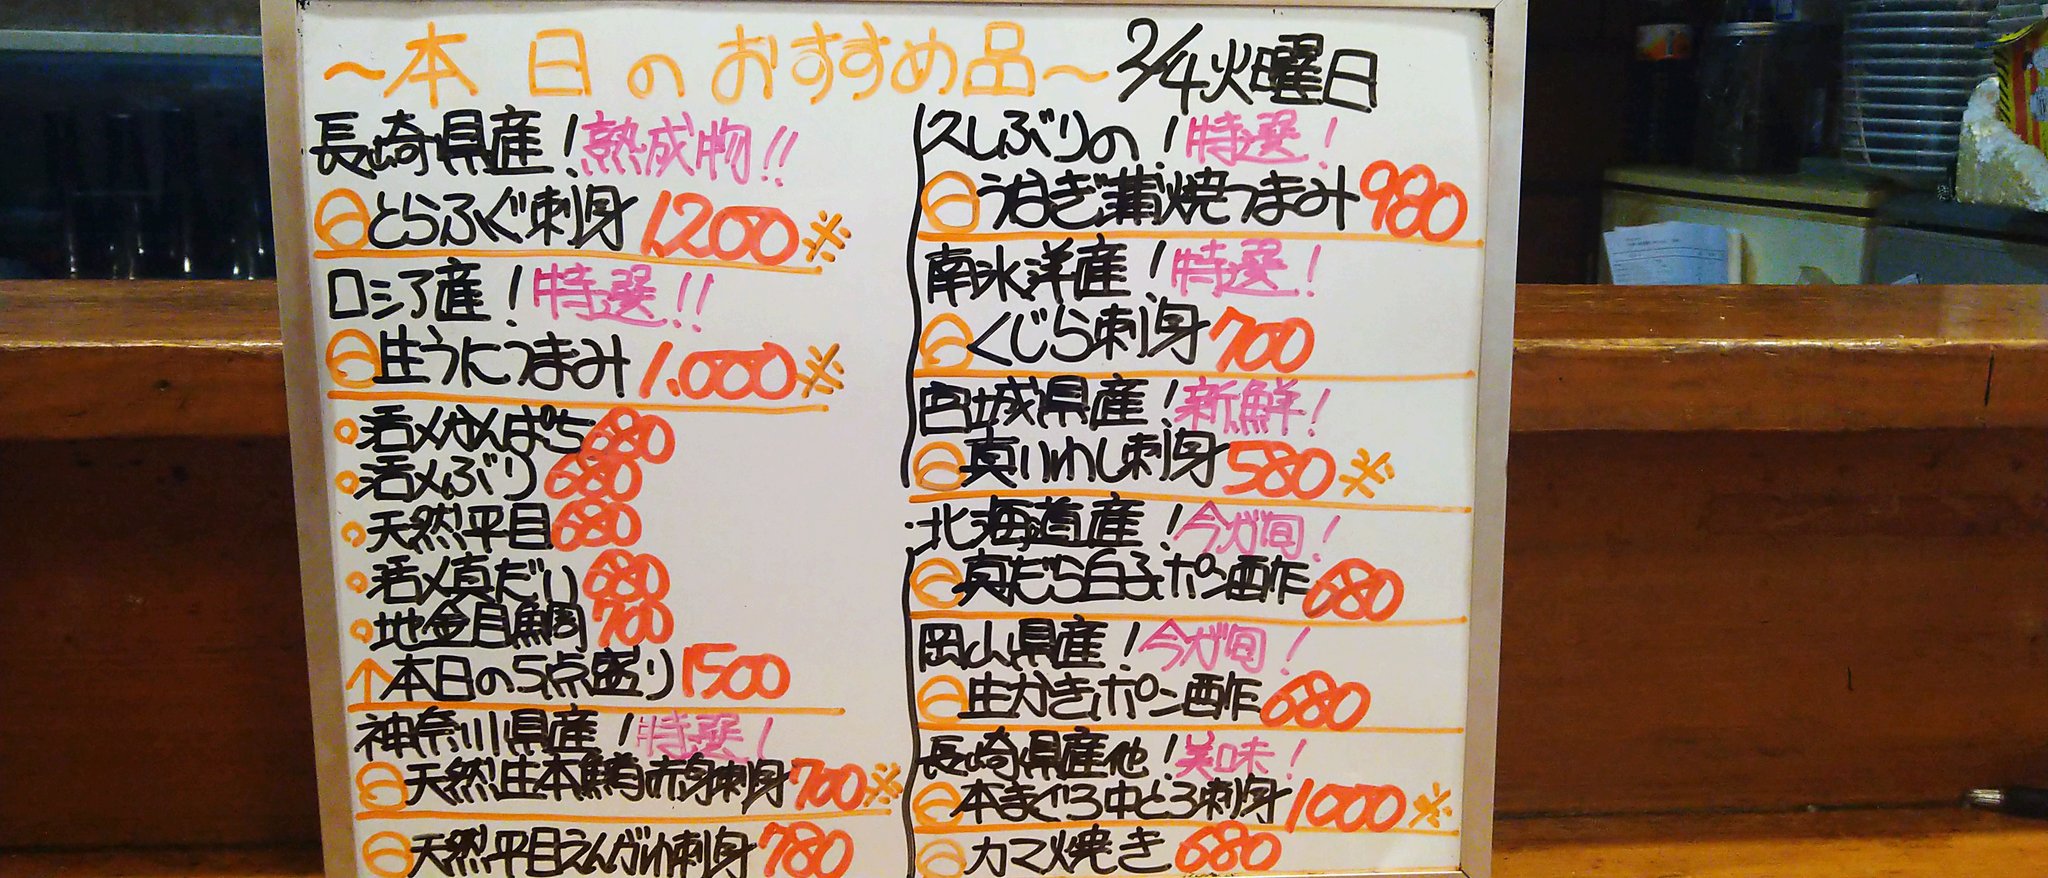 ~本日のおすすめ品~ 2/4火曜日
長崎県産!熟成物!!
とらふぐ刺身 1,200※
ロシア産!特選!!
生うにつまみ 1,000※
活〆かんぱち 680
活〆ぶり 680
天然平目 680
活〆真だい 680
地金目鯛 700
↑本日の5点盛り 1500
神奈川県産!特選!
天然生本鮪赤身刺身 700※
天然平目えんがわ刺身 780
久しぶりの!特選!
うなぎ蒲焼つまみ 980
南氷洋産!特選!
くじら刺身 700
宮城県産!新鮮!
真いわし刺身 580※
北海道産!今が旬!
真だら白子ポン酢 680
岡山県産!今が旬!
生かきポン酢 680
長崎県産他!美味!
本まぐろ中とろ刺身 1000※
カマ焼き 680